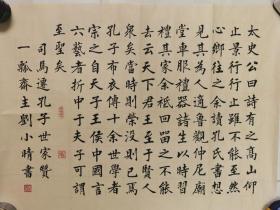 太史公曰詩有之高山仰
止景行行止雖不能至然
心鄉往之余讀孔氏書想
見其為人適魯觀仲尼廟
堂車服禮器諸生以時習
禮其家余祗回留之不能
去云天下君王至于賢人
眾矣當時則榮沒則已焉
孔子布衣傳十余世學者
宗之自天子王侯中國言
六藝者折中于夫子可謂
至聖矣
司馬遷孔子世家贊
一瓢齋主劉小晴書